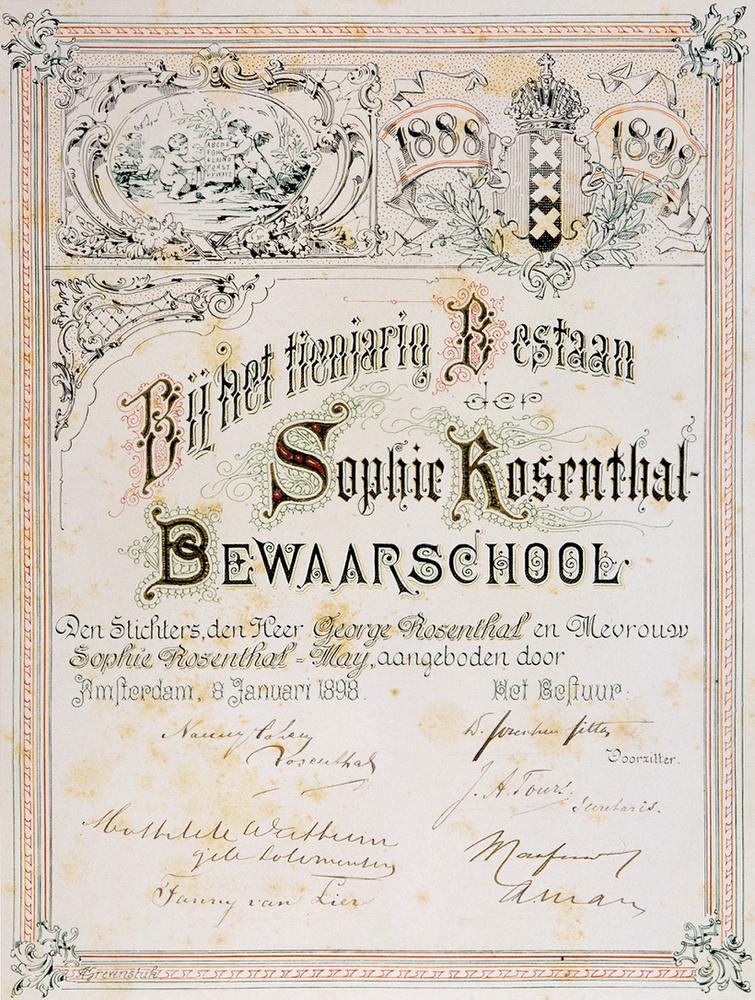 1888
1898
Bij het tienjarig Bestaan
der
Sophie Rosenthal-
BEWAARSCHOOL
Den Stichters, den Heer George Rosenthal en Mevrouw
Sophie Rosenthal-May, aangeboden door
Amsterdam, 8 Januari 1898.
Het Bestuur:
Nanny Cohen
Rosenthal
D. Josephus Jitta
Voorzitter.
J. A. Tours.
Secretaris.
Mathilde Wertheim
Fanny van Lier
A. Grevenstuk